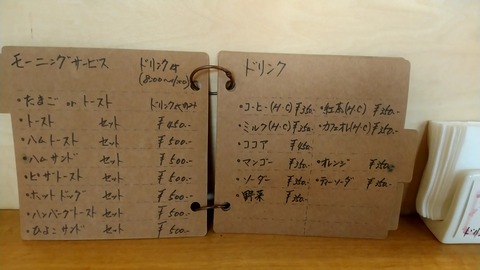 モーニングサービス
ドリンク付
(8:00〜11:00)
・たまご or トースト ドリンク代のみ
・トースト セット ¥450.-
・ハムトースト セット ¥500.-
・ハムサンド セット ¥500.-
・ピザトースト セット ¥500.-
・ホットドッグ セット ¥500.-
・ハンバーグトースト セット ¥500.-
・ひよこサンド セット ¥500.-
ドリンク
・コーヒー(H・C) ¥350.- ・紅茶(H・C) ¥350.-
・ミルク(H・C) ¥350.- ・カフェオレ(H・C) ¥350.-
・ココア ¥450.-
・マンゴー ¥350.- ・オレンジ ¥350.-
・ソーダー ¥350.- ・ティーソーダ ¥350.-
・野菜 ¥350.-